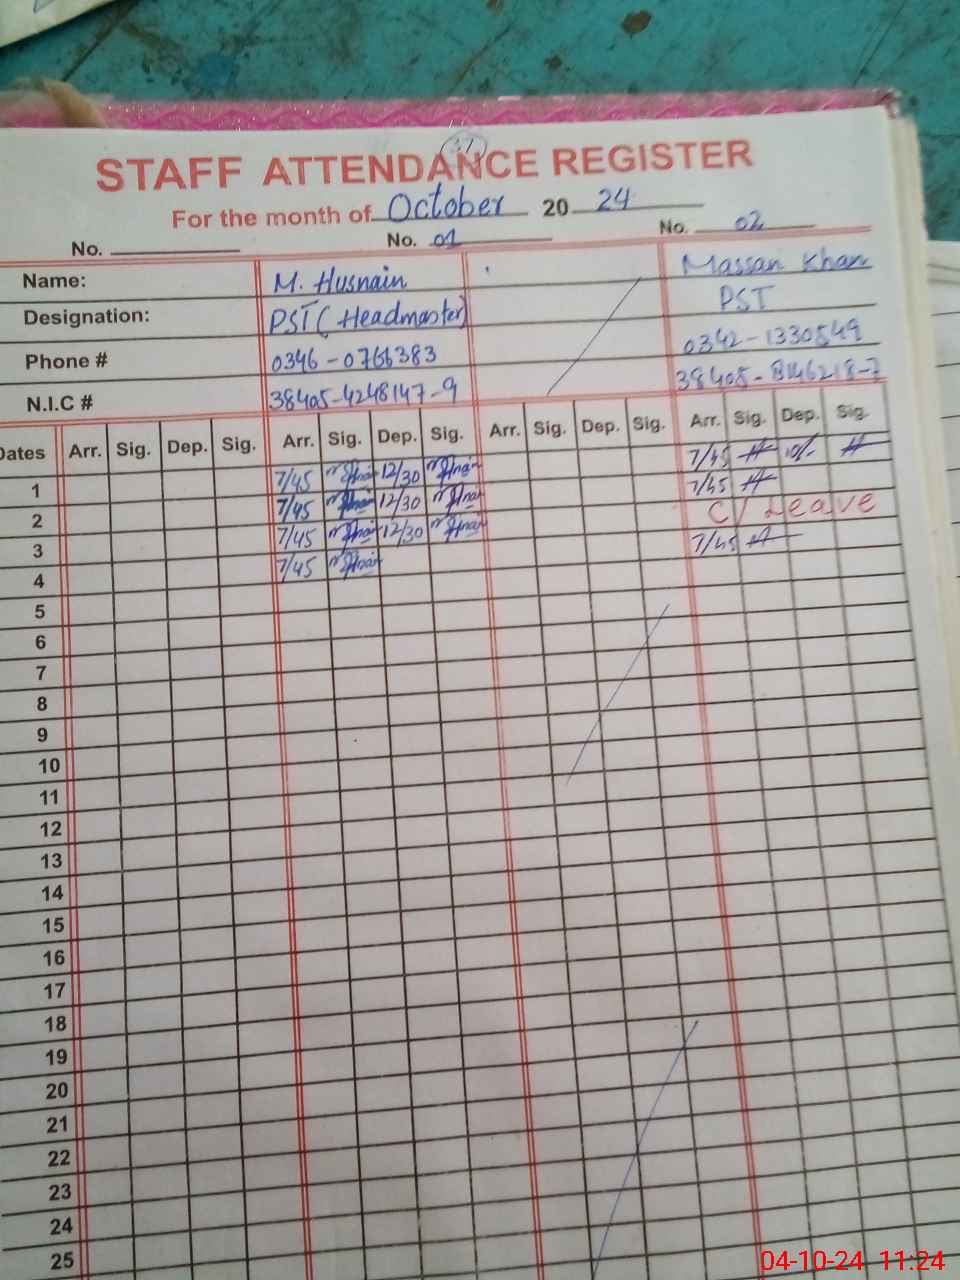 37
STAFF ATTENDANCE REGISTER
For the month of October 2024
No. No. 01 No. 02
Name: M. Husnain Massan Khan
Designation: PST (Headmaster) PST
Phone # 0346-0766383 0342-1330549
N.I.C # 38405-4248147-9 38405-8146218-7
Dates Arr. Sig. Dep. Sig. Arr. Sig. Dep. Sig. Arr. Sig. Dep. Sig. Arr. Sig. Dep. Sig.
1 7/45 12/30 7/45 10/-
2 7/45 12/30 7/45
3 7/45 12/30 C/ Leave
4 7/45 7/45
5
6
7
8
9
10
11
12
13
14
15
16
17
18
19
20
21
22
23
24
25
04-10-24 11:24